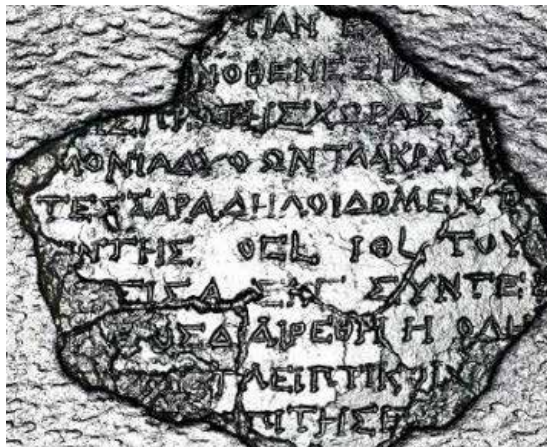 ΠΑΝ
ΝΟΘΕΝΕΞΗΛ
ΗΣΠΡΩΤΗΣΧΩΡΑΣ
ΜΟΝΙΑΔΥΟΩΝΤΑΑΚΡΑΦ
ΤΕΣΣΑΡΑΔΗΛΟΙΔΩΜΕΝΟ
ΝΤΗΣ ΟϚL ΙΘL ΤΟΥ
ΣΙΣΑ ΣΚΓ ΣΥΝΤΕΣ
ΟΣΔΙΑΙΡΕΘΗ Η ΟΛΗ
ΕΓΛΕΙΠΤΙΚΟΙΧ
ΠΙΤΗΣΕ